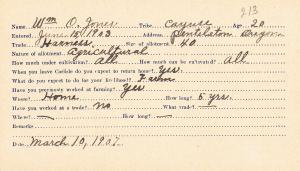 213
Name, Wm O. Jones Tribe, Cayuse Age, 20
Entered, June 15, 1903 Address, Pendleton Oregon
Trade, Harness Size of allotment, 40
Nature of allotment, Agricultural
How much under cultivation? All How much can be cultivated? all
When you leave Carlisle do you expect to return home? Yes.
What do you expect to do for your livelihood? Farm
Have you previously worked at farming? Yes
Where? Home How long? 5 yrs.
Have you worked at a trade? No What trade?
Where? — How long? —
Remarks
Date March 10, 1907.